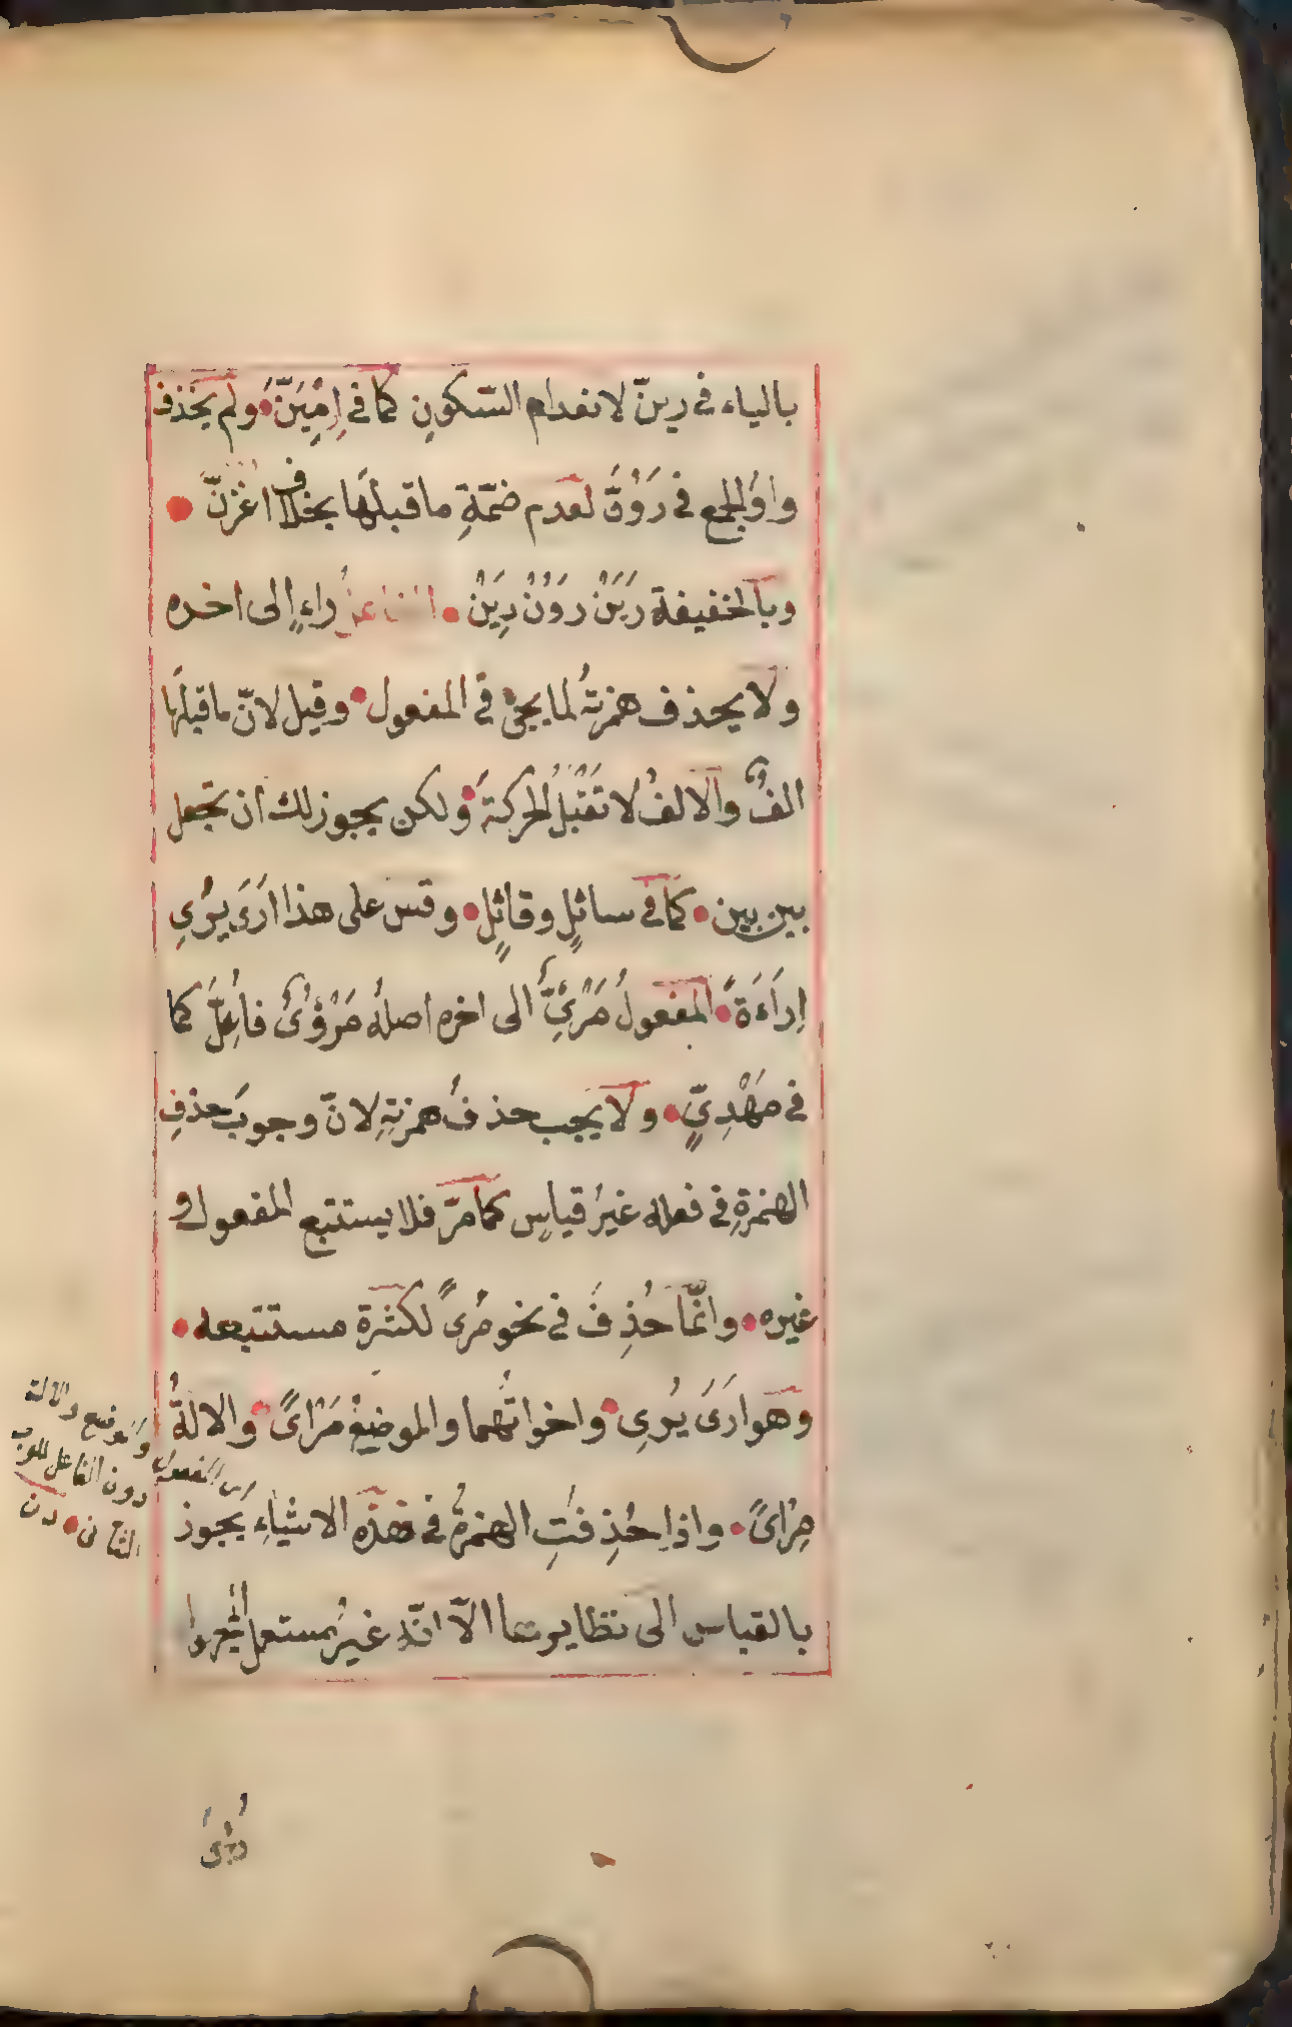 بالياء في رينّ لانعدام السّكونِ كما في اِرْمِيَنَّ ولم يحذف
واوُ الجمع في رَوُنَّ لعدم ضمّةِ ما قبلها بخلاف اغزنّ
وبالخفيفة رَيَنْ رَوُنْ رِيَنْ الفاعلُ راءٍ الى اخره
ولا يحذف همزتهُ لما يجئ في المفعول وقيل لانّ ما قبلها
الفٌ والالفُ لا تقبلُ الحركة ولكن يجوز لك ان تجعل
بين بين كما في سائلٍ وقائلٍ وقس على هذا اَرَى يُرِى
اِرَاءَةً المفعولُ مَرْئِيٌّ الى اخره اصلهُ مَرْؤُىٌ فاُعِلَّ كما
في مَهْدِىٍّ ولا يجب حذفُ همزتهِ لانّ وجوبَ حذفِ
الهمزةِ في فعله غيرُ قياسٍ كما مرّ فلا يستتبع المفعول و
غيره وانّما حُذِفَ في نحو مُرىً لكثرة مستتبعه
وهو اَرَىَ يُرِى واخواتُهما والموضِعُ مَرْاىً والالةُ
مِرْاىً واذا حُذِفَتِ الهمزةُ في هذه الاشياءِ يجوز
بالقياس الى نظايرها الاّ انّه غيرُ مستعمل
من المفعول والموضع والالة
دون الفاعل